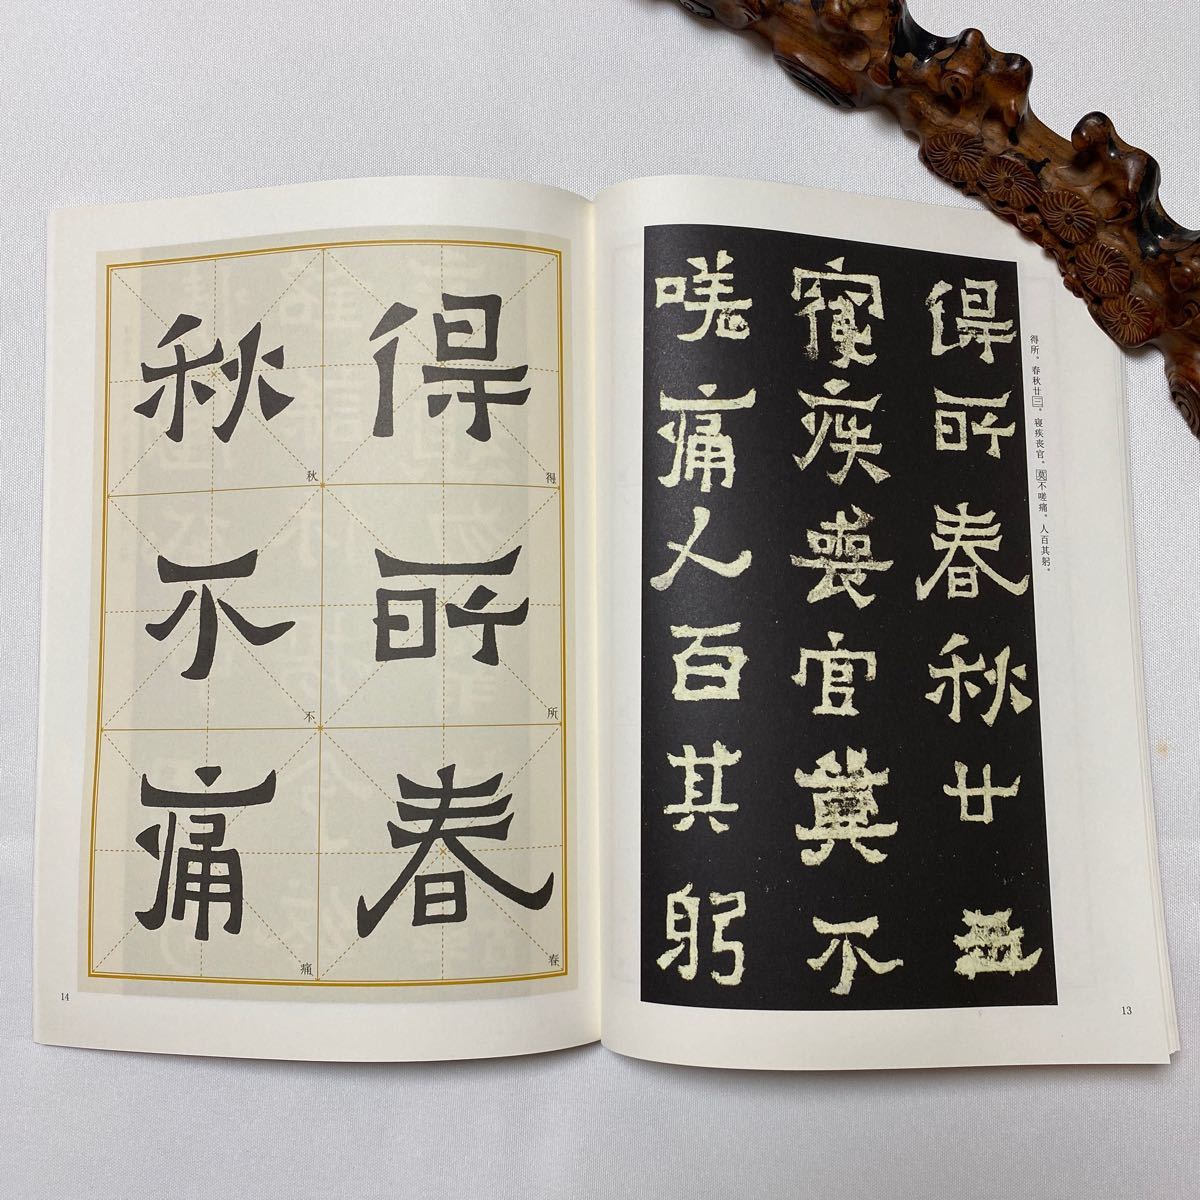 得所。春秋廿三。寝疾丧官。莫不嗟痛。人百其躬。
得所春秋廿
寝疾喪官莫不
嗟痛人百其躬
13
得所春
得
所
春
秋不痛
秋
不
痛
14